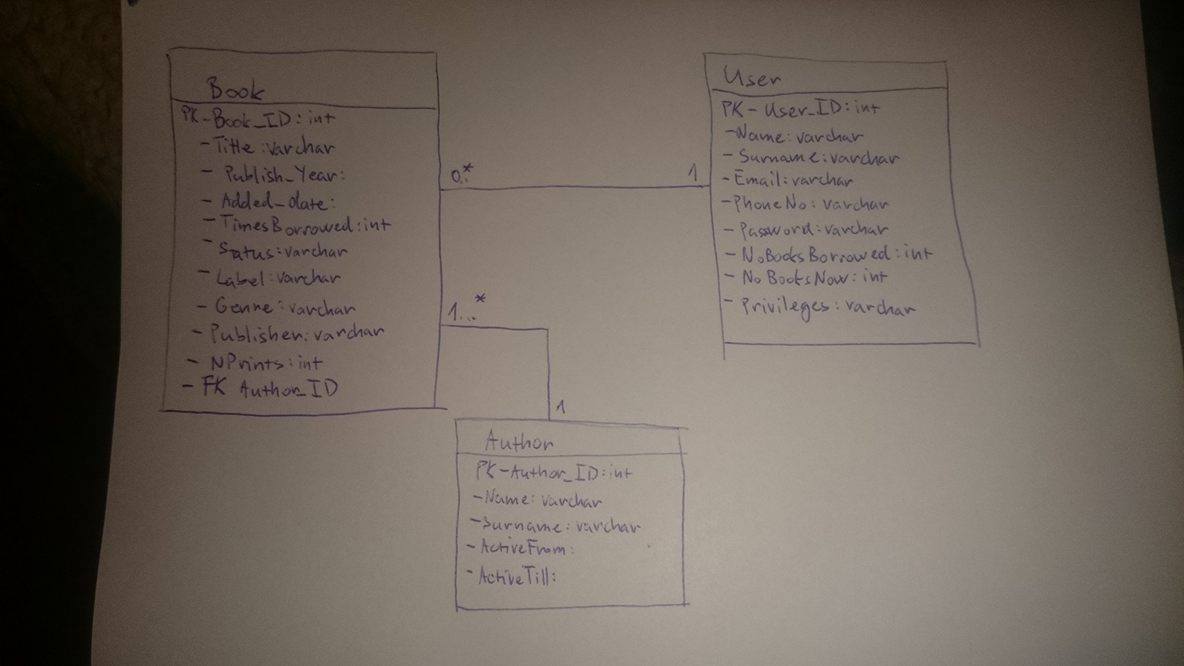 Book
PK-Book_ID: int
- Title: varchar
- Publish_Year:
- Added_date:
- TimesBorrowed: int
- Status: varchar
- Label: varchar
- Genre: varchar
- Publisher: varchar
- NPrints: int
- FK Author_ID
0..*
1
User
PK- User_ID: int
-Name: varchar
- Surname: varchar
-Email: varchar
-PhoneNo: varchar
- Password: varchar
- NoBooksBorrowed: int
- NoBooksNow: int
- Privileges: varchar
1...*
1
Author
PK-Author_ID: int
-Name: varchar
-Surname: varchar
- ActiveFrom:
- ActiveTill: